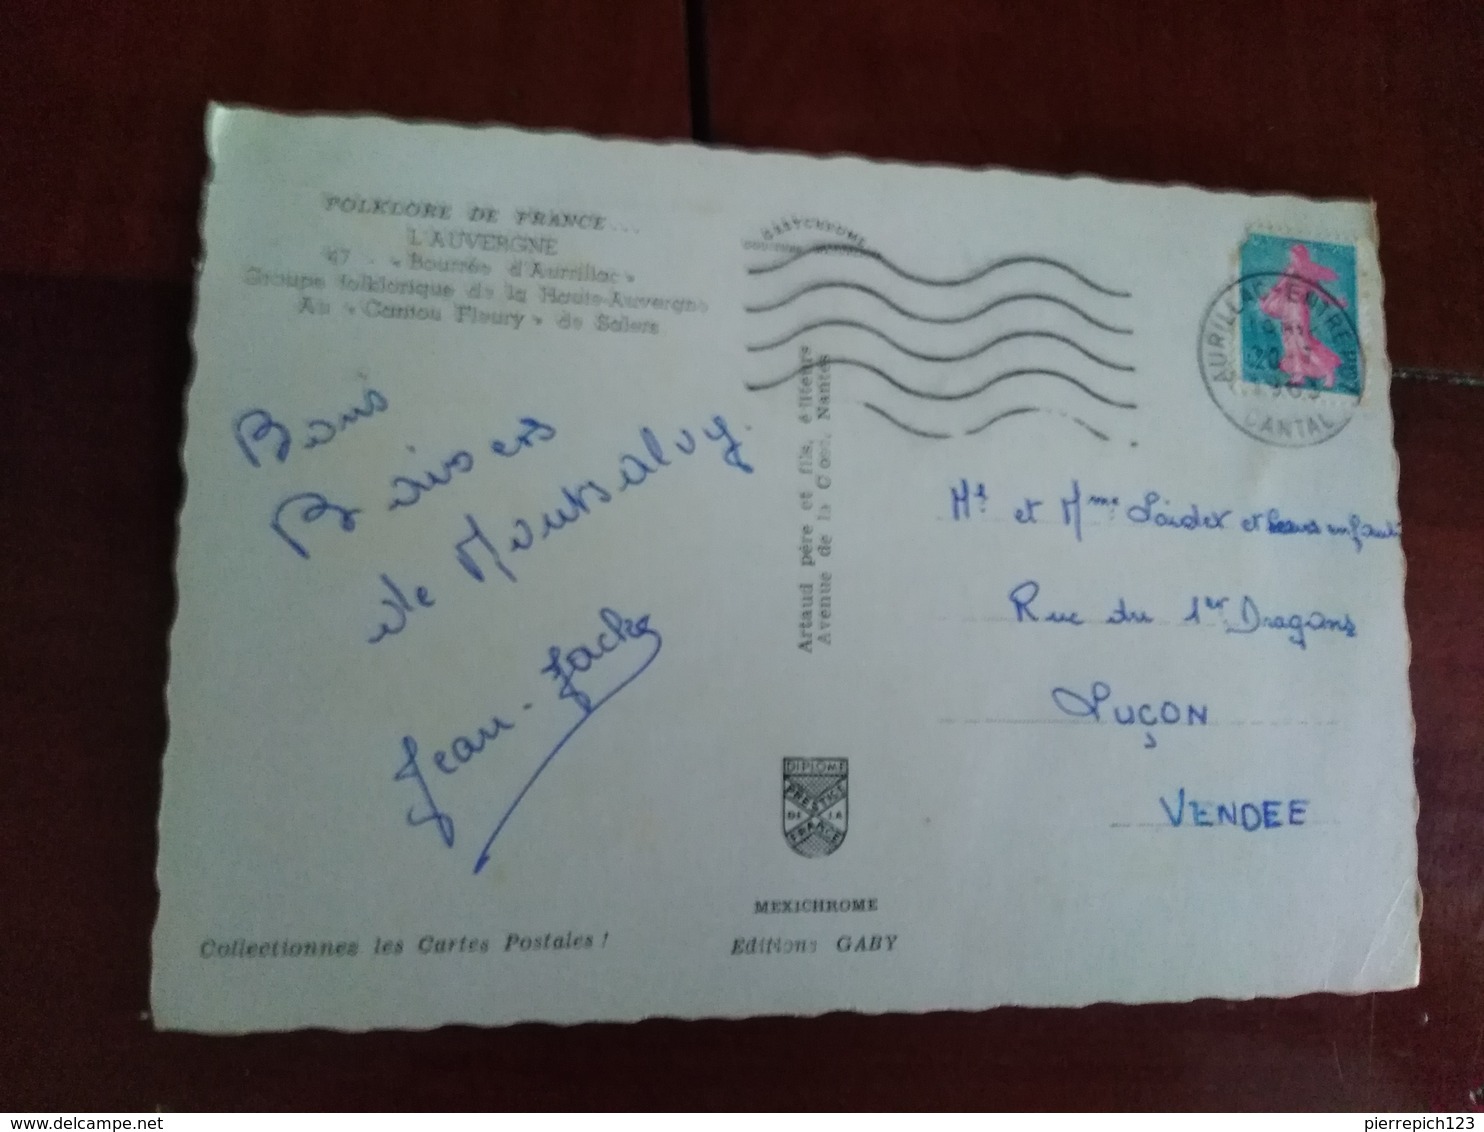 FOLKLORE DE FRANCE...
L'AUVERGNE
47 - « Bourrée d'Aurrillac »
Groupe folklorique de la Haute-Auvergne
Au « Cantou Fleury » de Salers
Bons
Baisers
de Montsalvy.
Jean-Jacky
Collectionnez les Cartes Postales !
Artaud père et fils, éditeurs
Avenue de la Nantes
DIPLOME
PRESTIGE
DE LA
FRANCE
MEXICHROME
Editions GABY
AURILLAC-ENTREPOT
20
CANTAL
Mr et Mme et enfants
Rue du 1er Dragons
LUÇON
VENDEE
delcampe.net
pierrepich123